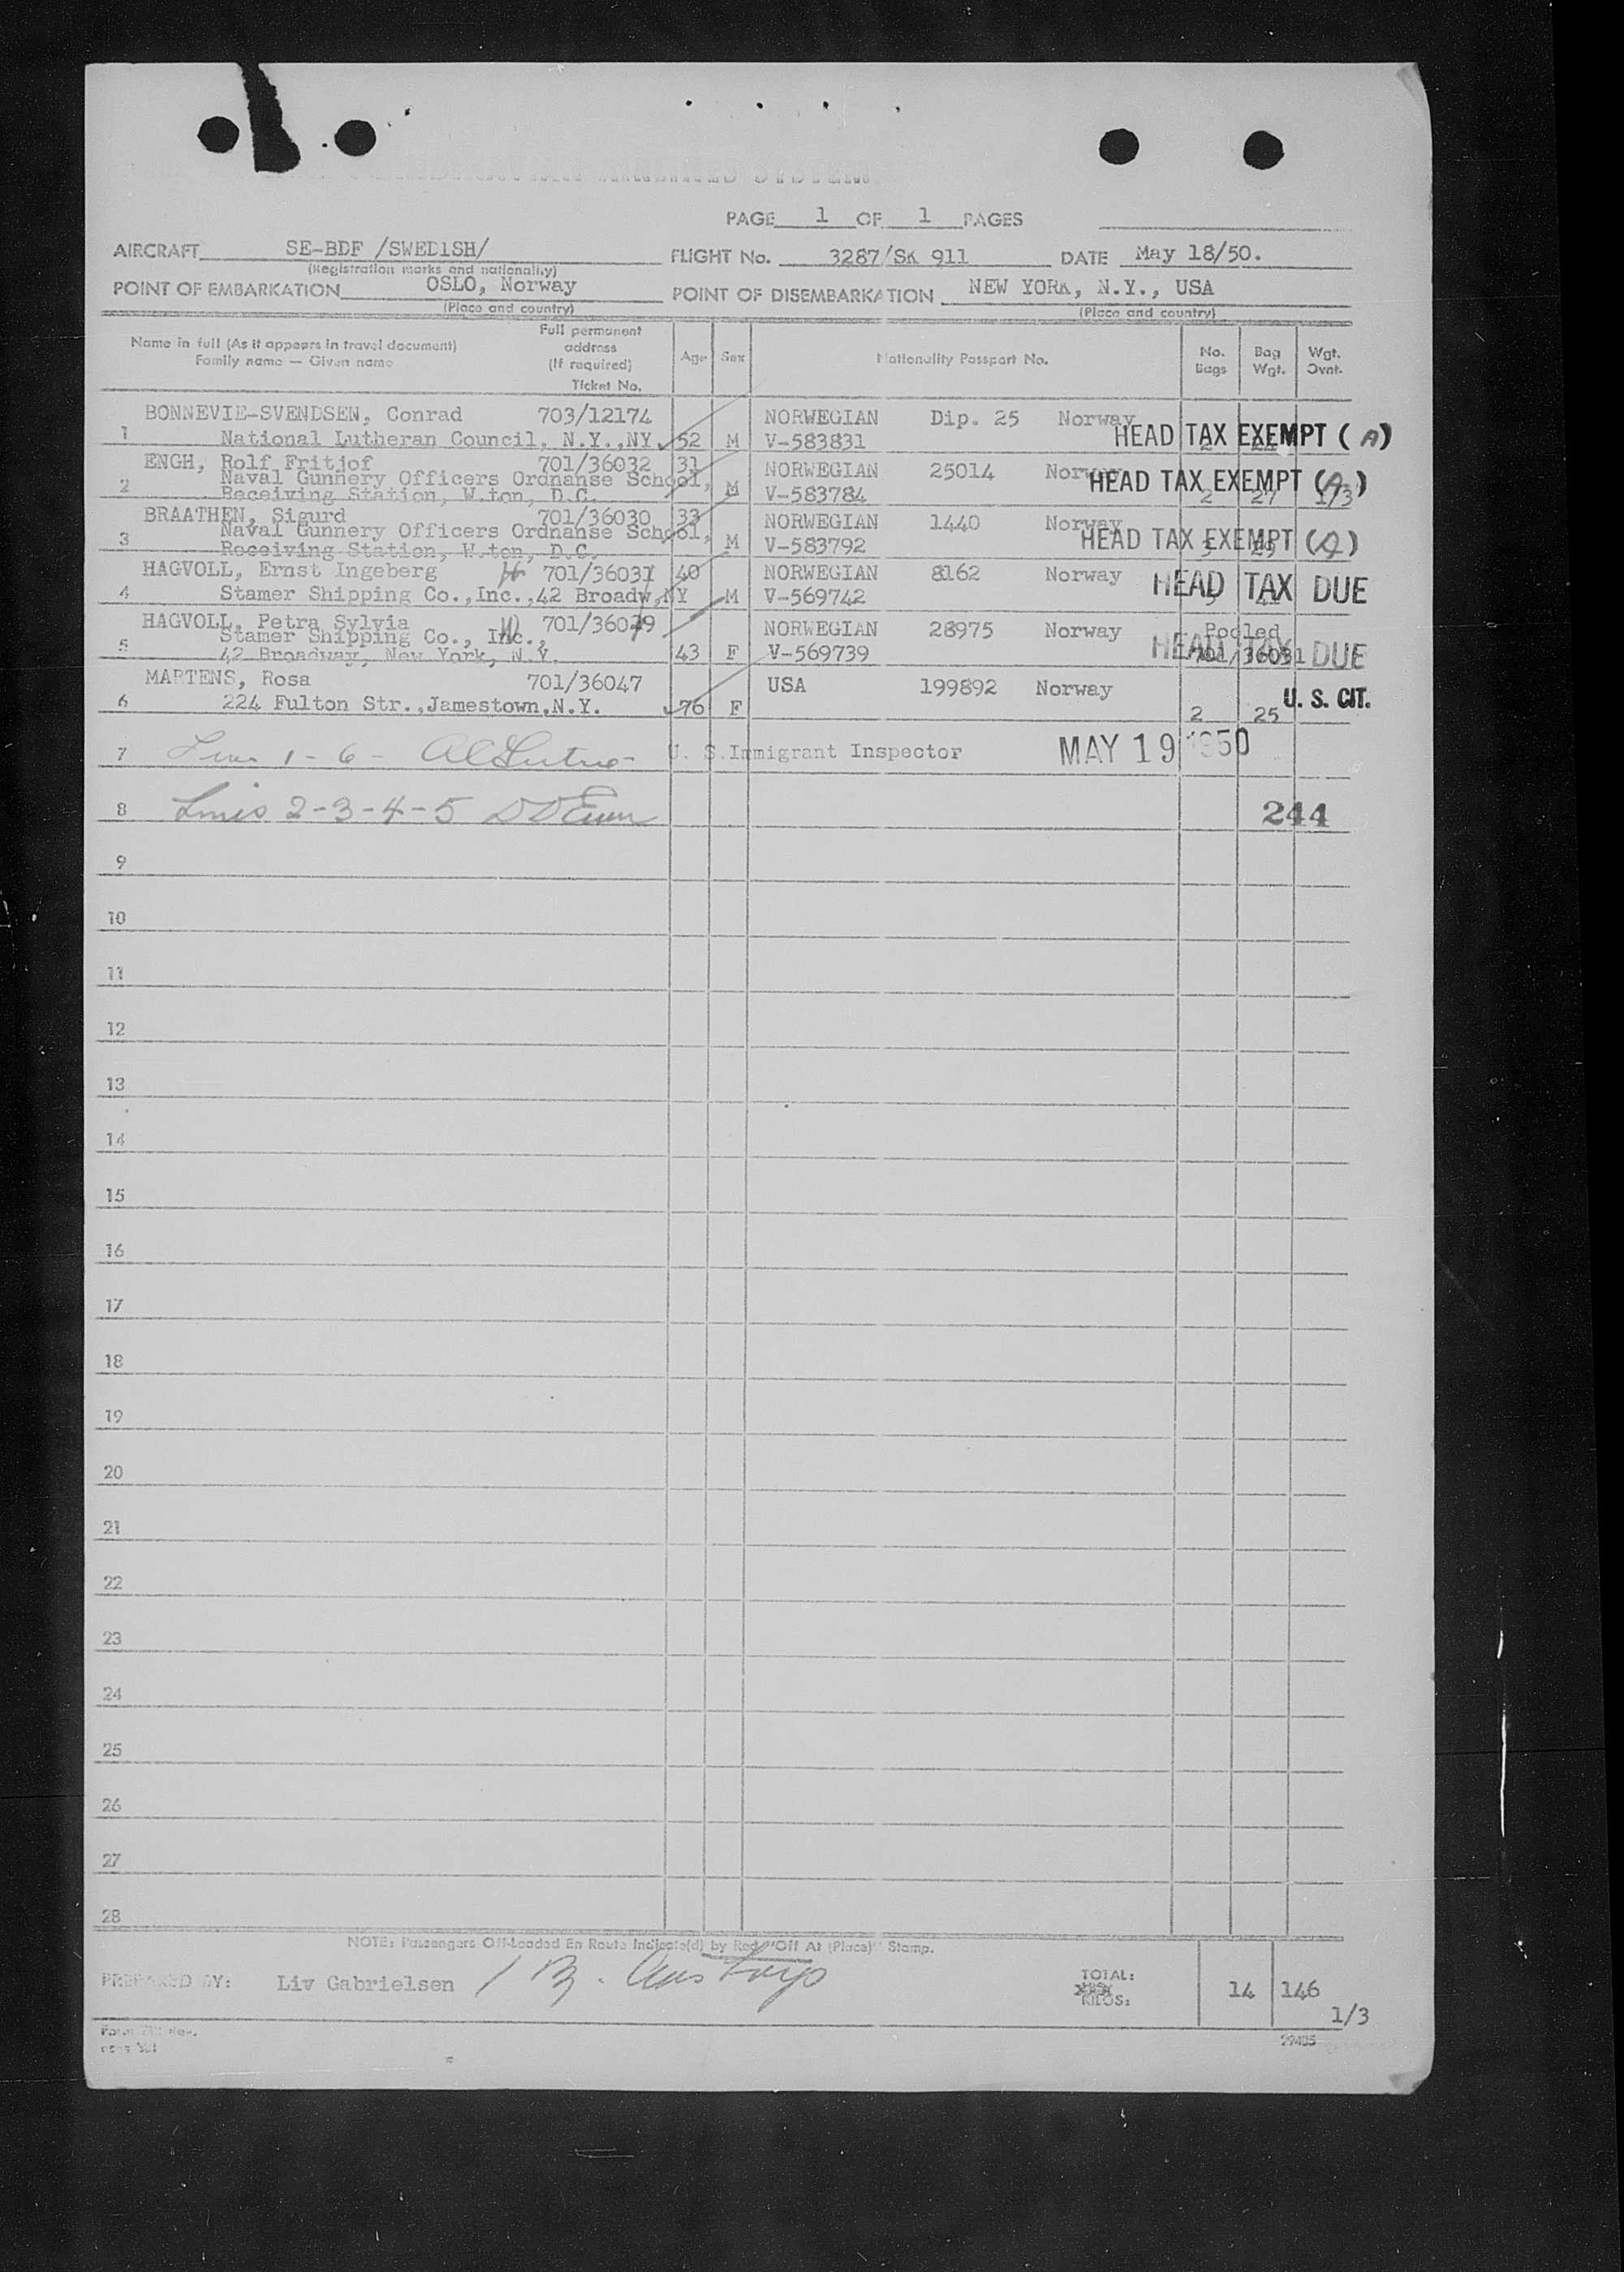 PAGE 1 OF 1 PAGES
AIRCRAFT SE-BDF /SWEDISH/ FLIGHT No. 3287/SK 911 DATE May 18/50.
(Registration marks and nationality)
POINT OF EMBARKATION OSLO, Norway POINT OF DISEMBARKATION NEW YORK, N.Y., USA
(Place and country) (Place and country)
Name in full (As it appears in travel document)
Family name — Given name
Full permanent
address
(If required)
Ticket No.
Age Sex Nationality Passport No.
No.
Bags
Bag
Wgt.
Wgt.
Ovnt.
BONNEVIE-SVENDSEN, Conrad 703/12174 NORWEGIAN Dip. 25 Norway
1 National Lutheran Council, N.Y.,NY. 52 M V-583831 HEAD TAX EXEMPT (A)
ENGH, Rolf Fritjof 701/36032 31 NORWEGIAN 25014 Norway
Naval Gunnery Officers Ordnanse School, HEAD TAX EXEMPT (A)
2 Receiving Station, W.ton, D.C. M V-583784 2 27 1/3
BRAATHEN, Sigurd 701/36030 33 NORWEGIAN 1440 Norway
Naval Gunnery Officers Ordnanse School, HEAD TAX EXEMPT (A)
3 Receiving Station, W.ton, D.C. M V-583792
HAGVOLL, Ernst Ingeberg 701/36031 40 NORWEGIAN 8162 Norway
4 Stamer Shipping Co.,Inc.,42 Broadw,NY M V-569742 HEAD TAX DUE
HAGVOLL, Petra Sylvia 701/36029 NORWEGIAN 28975 Norway Pooled
Stamer Shipping Co., Inc., 701/36031
5 42 Broadway, New York, N.Y. 43 F V-569739 HEAD TAX DUE
MARTENS, Rosa 701/36047 USA 199892 Norway
6 224 Fulton Str.,Jamestown,N.Y. 76 F 2 25 U. S. CIT.
7 1 - 6 - U. S. Immigrant Inspector MAY 19 1950
8 Lines 2-3-4-5 244
9
10
11
12
13
14
15
16
17
18
19
20
21
22
23
24
25
26
27
28
NOTE: Passengers Off-Loaded En Route Indicate(d) by Red "Off At (Place)" Stamp.
PREPARED BY: Liv Gabrielsen
TOTAL:
KILOS: 14 146
1/3
29405